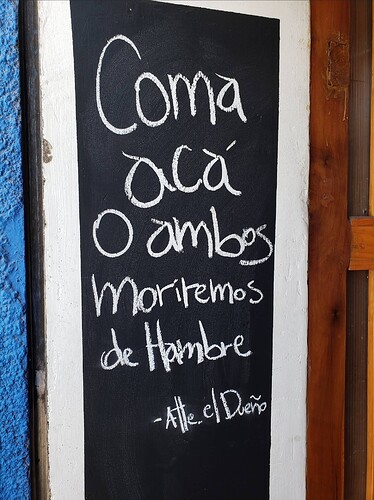 Coma
acá
O ambos
moriremos
de Hambre
- Atte. el Dueño